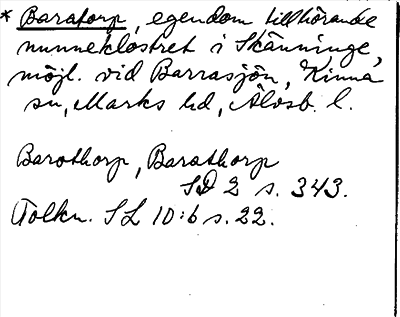 * Baratorp, egendom tillhörande
nunneklostret i Skänninge,
möjl. vid Barrasjön, Kinna
sn, Marks hd, Älvsb. l.
Barothorp, Barathorp
SD 2 s. 343.
Tolkn. SL 10:6 s. 22.